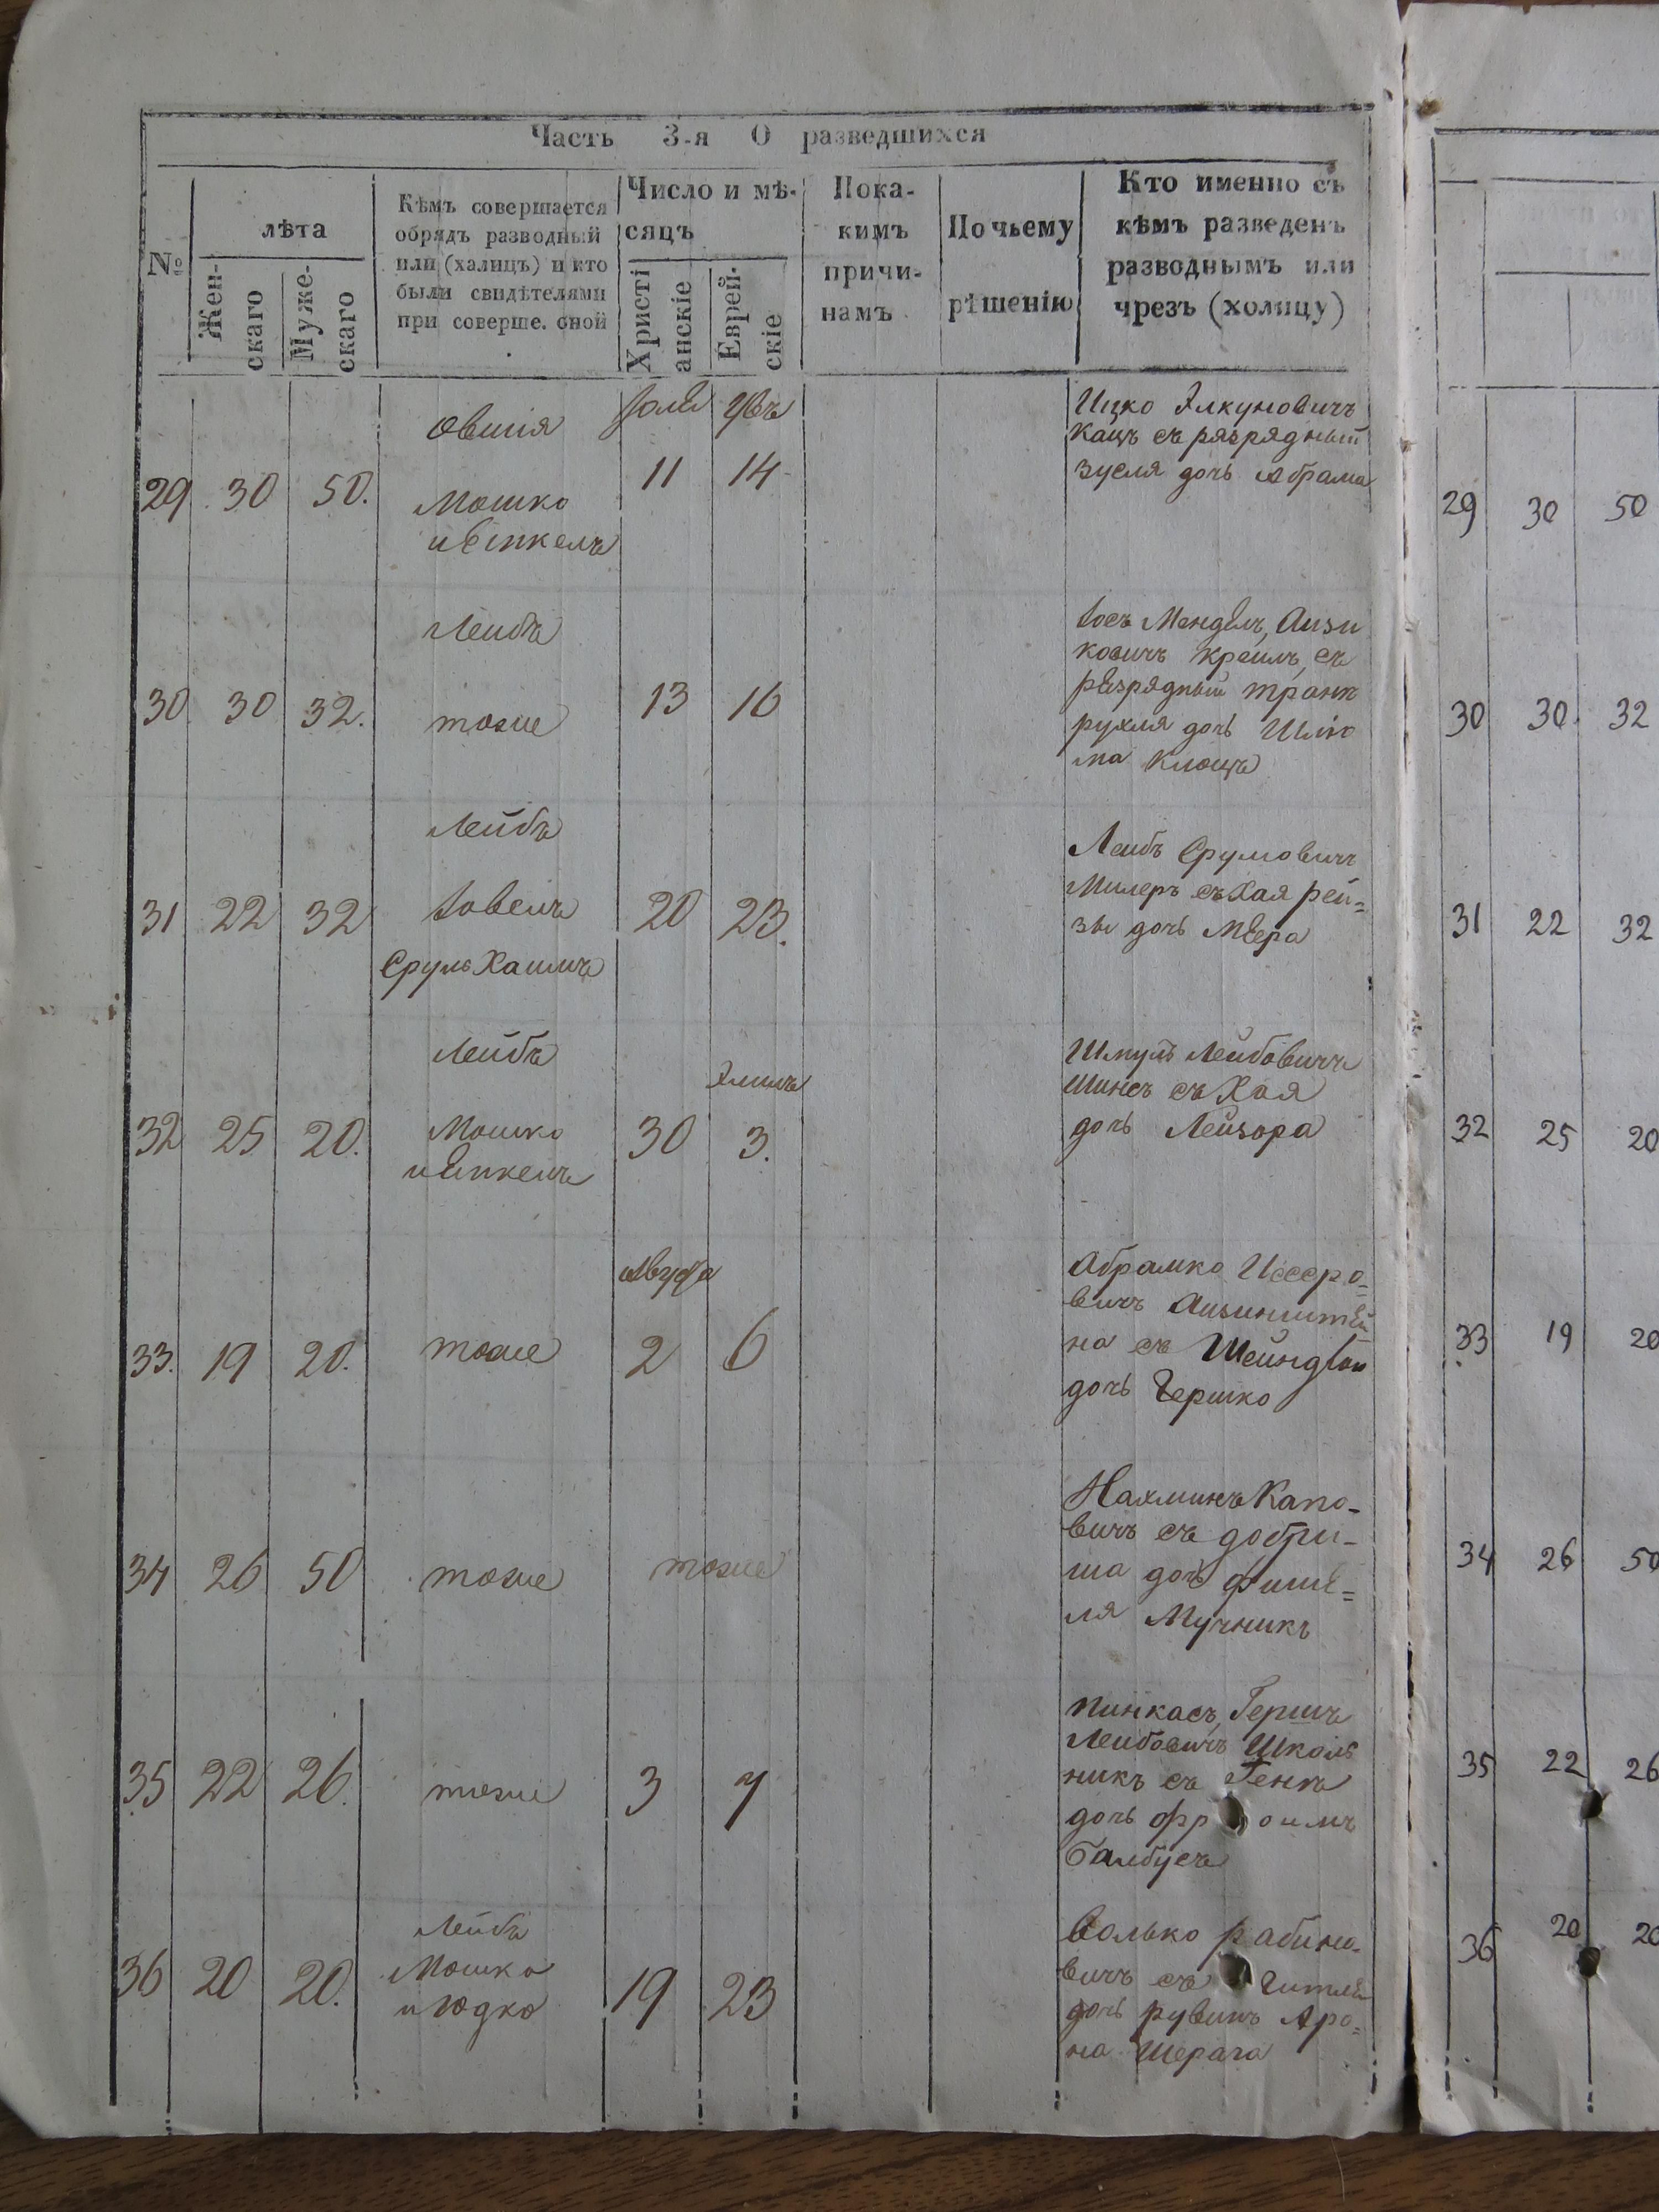 Часть 3-я О разведшихся
№
лѣта
Жен-
скаго
Муже-
скаго
Кѣмъ совершается
обрядъ разводный
или (халицъ) и кто
были свидѣтелями
при соверше. оной
Число и мѣ-
сяцъ
Христі
анскіе
Еврей-
скіе
Пока-
кимъ
причи-
намъ
По чьему
рѣшенію
Кто именно съ
кѣмъ разведенъ
разводнымъ или
чрезъ (холицу)
29 30 50. Мошко 11 14
Ицко Элкуновичъ
Кацъ съ разрядный
зуселя дочь Абрама
30 30 32. Лейбъ тоже 13 16
Іосъ Мендель Аизи
ковичъ Креилъ съ
разрядный
рухля дочь Шлио
ма
31 22 32 Лейбъ
Іовель 20 23.
Сруль Хаимъ
Лейбъ Срумовичъ
Милеръ съ Хая рей=
зы дочь Меера
32 25 20. Лейбъ
Мошко 30 3.
Шмуль Лейбовичъ
съ Хая
дочь Лейзора
Августа
33. 19 20. тоже 2 6
Абрамко Иссеро=
вичъ Аизинштей
на съ
дочь Гершко
34 26 50 тоже тоже
Нахминъ Капо-
вичъ съ добри-
ша дочь фише=
ля Мучникъ
35 22 26. тоже 3 7
Пинкасъ Гершъ
Лейбовичъ Школь
никъ съ Генъ
дочь фр оимъ
36 20 20. Лейбъ
Мошко
и Юдко 19 23
Волько рабино-
вичъ съ Гитля
дочь рувинъ Аро=
на Шерага
29 30 50
30 30 32
31 22 32
32 25 20
33 19 20
34 26 50
35 22 26
36 20 20